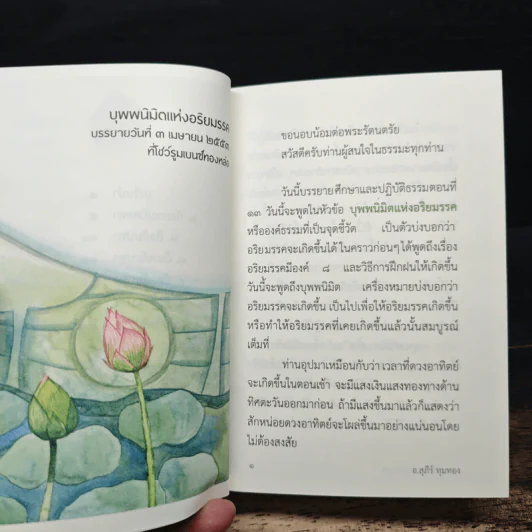 บุพพนิมิตแห่งอริยมรรค
บรรยายวันที่ ๓ เมษายน ๒๕๕๓
ที่โชว์รูมเบนซ์ทองหล่อ
ขอนอบน้อมต่อพระรัตนตรัย
สวัสดีครับท่านผู้สนใจในธรรมะทุกท่าน
วันนี้บรรยายศึกษาและปฏิบัติธรรมตอนที่
๑๓ วันนี้จะพูดในหัวข้อ บุพพนิมิตแห่งอริยมรรค
หรือองค์ธรรมที่เป็นจุดชี้วัด เป็นตัวบ่งบอกว่า
อริยมรรคจะเกิดขึ้นได้ ในคราวก่อนๆ ได้พูดถึงเรื่อง
อริยมรรคมีองค์ ๘ และวิธีการฝึกฝนให้เกิดขึ้น
วันนี้จะพูดถึงบุพพนิมิต เครื่องหมายบ่งบอกว่า
อริยมรรคจะเกิดขึ้น เป็นไปเพื่อให้อริยมรรคเกิดขึ้น
หรือทำให้อริยมรรคที่เคยเกิดขึ้นแล้วนั้นสมบูรณ์
เต็มที่
ท่านอุปมาเหมือนกับว่า เวลาที่ดวงอาทิตย์
จะเกิดขึ้นในตอนเช้า จะมีแสงเงินแสงทองทางด้าน
ทิศตะวันออกมาก่อน ถ้ามีแสงขึ้นมาแล้วก็แสดงว่า
สักหน่อยดวงอาทิตย์จะโผล่ขึ้นมาอย่างแน่นอนโดย
ไม่ต้องสงสัย
๑ อ.สุภีร์ ทุมทอง